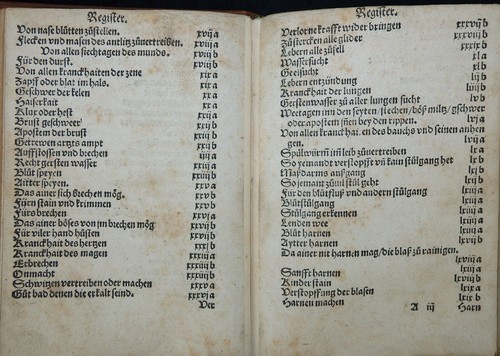 Register.
Von nase blůtten zůstellen. xvij a
Flecken und masen des antlitz zůuertreiben. xviij a
Von allen siechtagen des munds. xviij b
Für den durst. xix a
Von allen kranckhaiten der zene xix a
Zapff oder blat im hals. xx a
Geschwer der kelen xx a
Haiserkait xx a
Klux oder hest xxij a
Brust geschweer xxij b
Apostem der brust xxij b
Getrewen artzs ampt
Auffstossen und brechen
Recht gersten wasser xxiij a
Blůt speyen. xxiiij b
Aitter speyen. xxv a
Das ainer sich brechen mög. xxv b
Fürn stain und krimmen
Fürs brechen xxvj a
Das ainer böses von jm brechen mög xxvij b
Für viler hand hůsten xxvij b
Kranckhait des hertzen xxxj b
Kranckhait des magen xxxiij b
Erbrechen xxxiiij b
Onmacht xxxiiij b
Schwitzen vertreiben oder machen xxxv a
Gůt bad denen die erkalt seind. xxxvj a
Ver
Register.
Verlorne krafft wider bringen xxxvij b
Zůstercken alle glider xxxviij b
Lebern alle zůfell xxxix b
Wassersucht xl a
Geelsucht xl b
Lebern entzündung xl b
Kranckhait der lungen
Gerstenwasser zů aller lungen sucht lv b
Weetagen inn den seyten/ stechen/ böß miltz/ gschwer
oder apostem jnnen bey den rippen. lvj a
Von allen kranckhaiten des bauchs und seinen anhen
gen.
Spülwürm jm leib zůuertreiben lx a
So yemandt verstopfft uñ kain stůlgang het lx b
Maßdarms außgang
So jemant zůuil stůl geht lxj b
Für den blůtfluß und andern stůlgang
Blůtstůlgang
Stůlgang erkennen
Lenden wee
Blůt harnen
Aytter harnen
Da ainer nit harnen mag/ die blaß zů rainigen.
lxvij a
Sanfft harnen
Kinder stain
Verstopffung der blasen lxix a
Harnen machen lxix b
A iij Harn